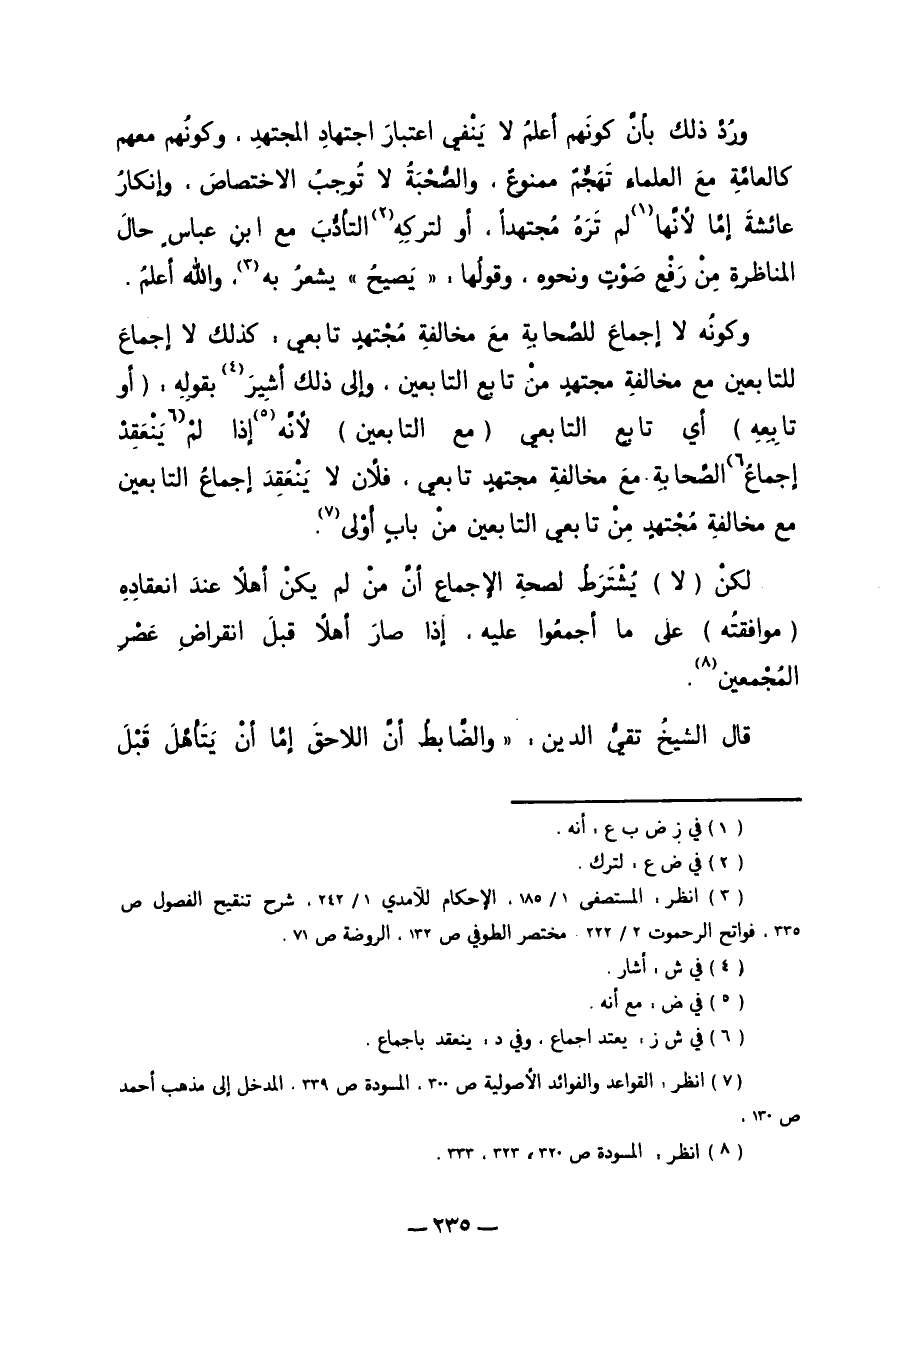 ورُدَّ ذلك بأنَّ كونَهم أعلمُ لا يَنْفي اعتبارَ اجتهادِ المجتهدِ ، وكونُهم معهم
كالعامَّةِ معَ العلماء تَهَجُّمٌ ممنوعٌ ، والصُّحْبَةُ لا تُوجِبُ الاختصاصَ ، وإنكارُ
عائشةَ إمَّا لأنَّها(١) لم تَرَهُ مُجتهداً ، أو لتركِهِ(٢) التأدُّبَ مع ابنِ عباسٍ حالَ
المناظرةِ مِنْ رَفْعِ صَوْتٍ ونحوِهِ ، وقولُها : « يَصيحُ » يشعرُ به(٣)، والله أعلمُ .
وكونُه لا إجماعَ للصَّحابةِ معَ مخالفةِ مُجْتهدٍ تابعي ، كذلك لا إجماعَ
للتابعين مع مخالفةِ مجتهدٍ منْ تابعِ التابعين ، وإلى ذلك أُشيرَ(٤) بقولِهِ : ( أو
تابِعِهِ ) أي تابع التابعي ( مع التابعين ) لأنَّه(٥) إذا لمْ(٦ يَنْعَقِدْ
إجماعُ٦) الصَّحابةِ معَ مخالفةِ مجتهدٍ تابعي ، فلَأن لا يَنْعَقِدَ إجماعُ التابعين
مع مخالفةِ مُجْتهدٍ مِنْ تابعي التابعين منْ بابٍ أوْلى(٧).
لكنْ ( لا ) يُشْتَرَطُ لصحةِ الإجماعِ أنَّ منْ لم يكنْ أهلًا عندَ انعقادِهِ
( موافقتُه ) على ما أجمعُوا عليه ، إذا صارَ أهلًا قبلَ انقراضِ عَصْرِ
المُجْمعين(٨).
قال الشيخُ تقيُّ الدين : « والضَّابطُ أنَّ اللاحقَ إمَّا أنْ يَتَأهَّلَ قَبْلَ
( ١ ) في ز ض ب ع : أنه .
( ٢ ) في ض ع : لترك .
( ٣ ) انظر : المستصفى ١ / ١٨٥ ، الإحكام للآمدي ١ / ٢٤٢ ، شرح تنقيح الفصول ص
٣٣٥ ، فواتح الرحموت ٢ / ٢٢٢ . مختصر الطوفي ص ١٣٢ ، الروضة ص ٧١ .
( ٤ ) في ش : أشار .
( ٥ ) في ض : مع أنه .
( ٦ ) في ش ز : يعتد اجماع ، وفي د : ينعقد باجماع .
( ٧ ) انظر : القواعد والفوائد الأصولية ص ٣٠٠ ، المسودة ص ٣٣٩ ، المدخل إلى مذهب أحمد
ص ١٣٠ .
( ٨ ) انظر : المسودة ص ٣٢٠ ، ٣٢٣ ، ٣٣٣ .
— ٢٣٥ —